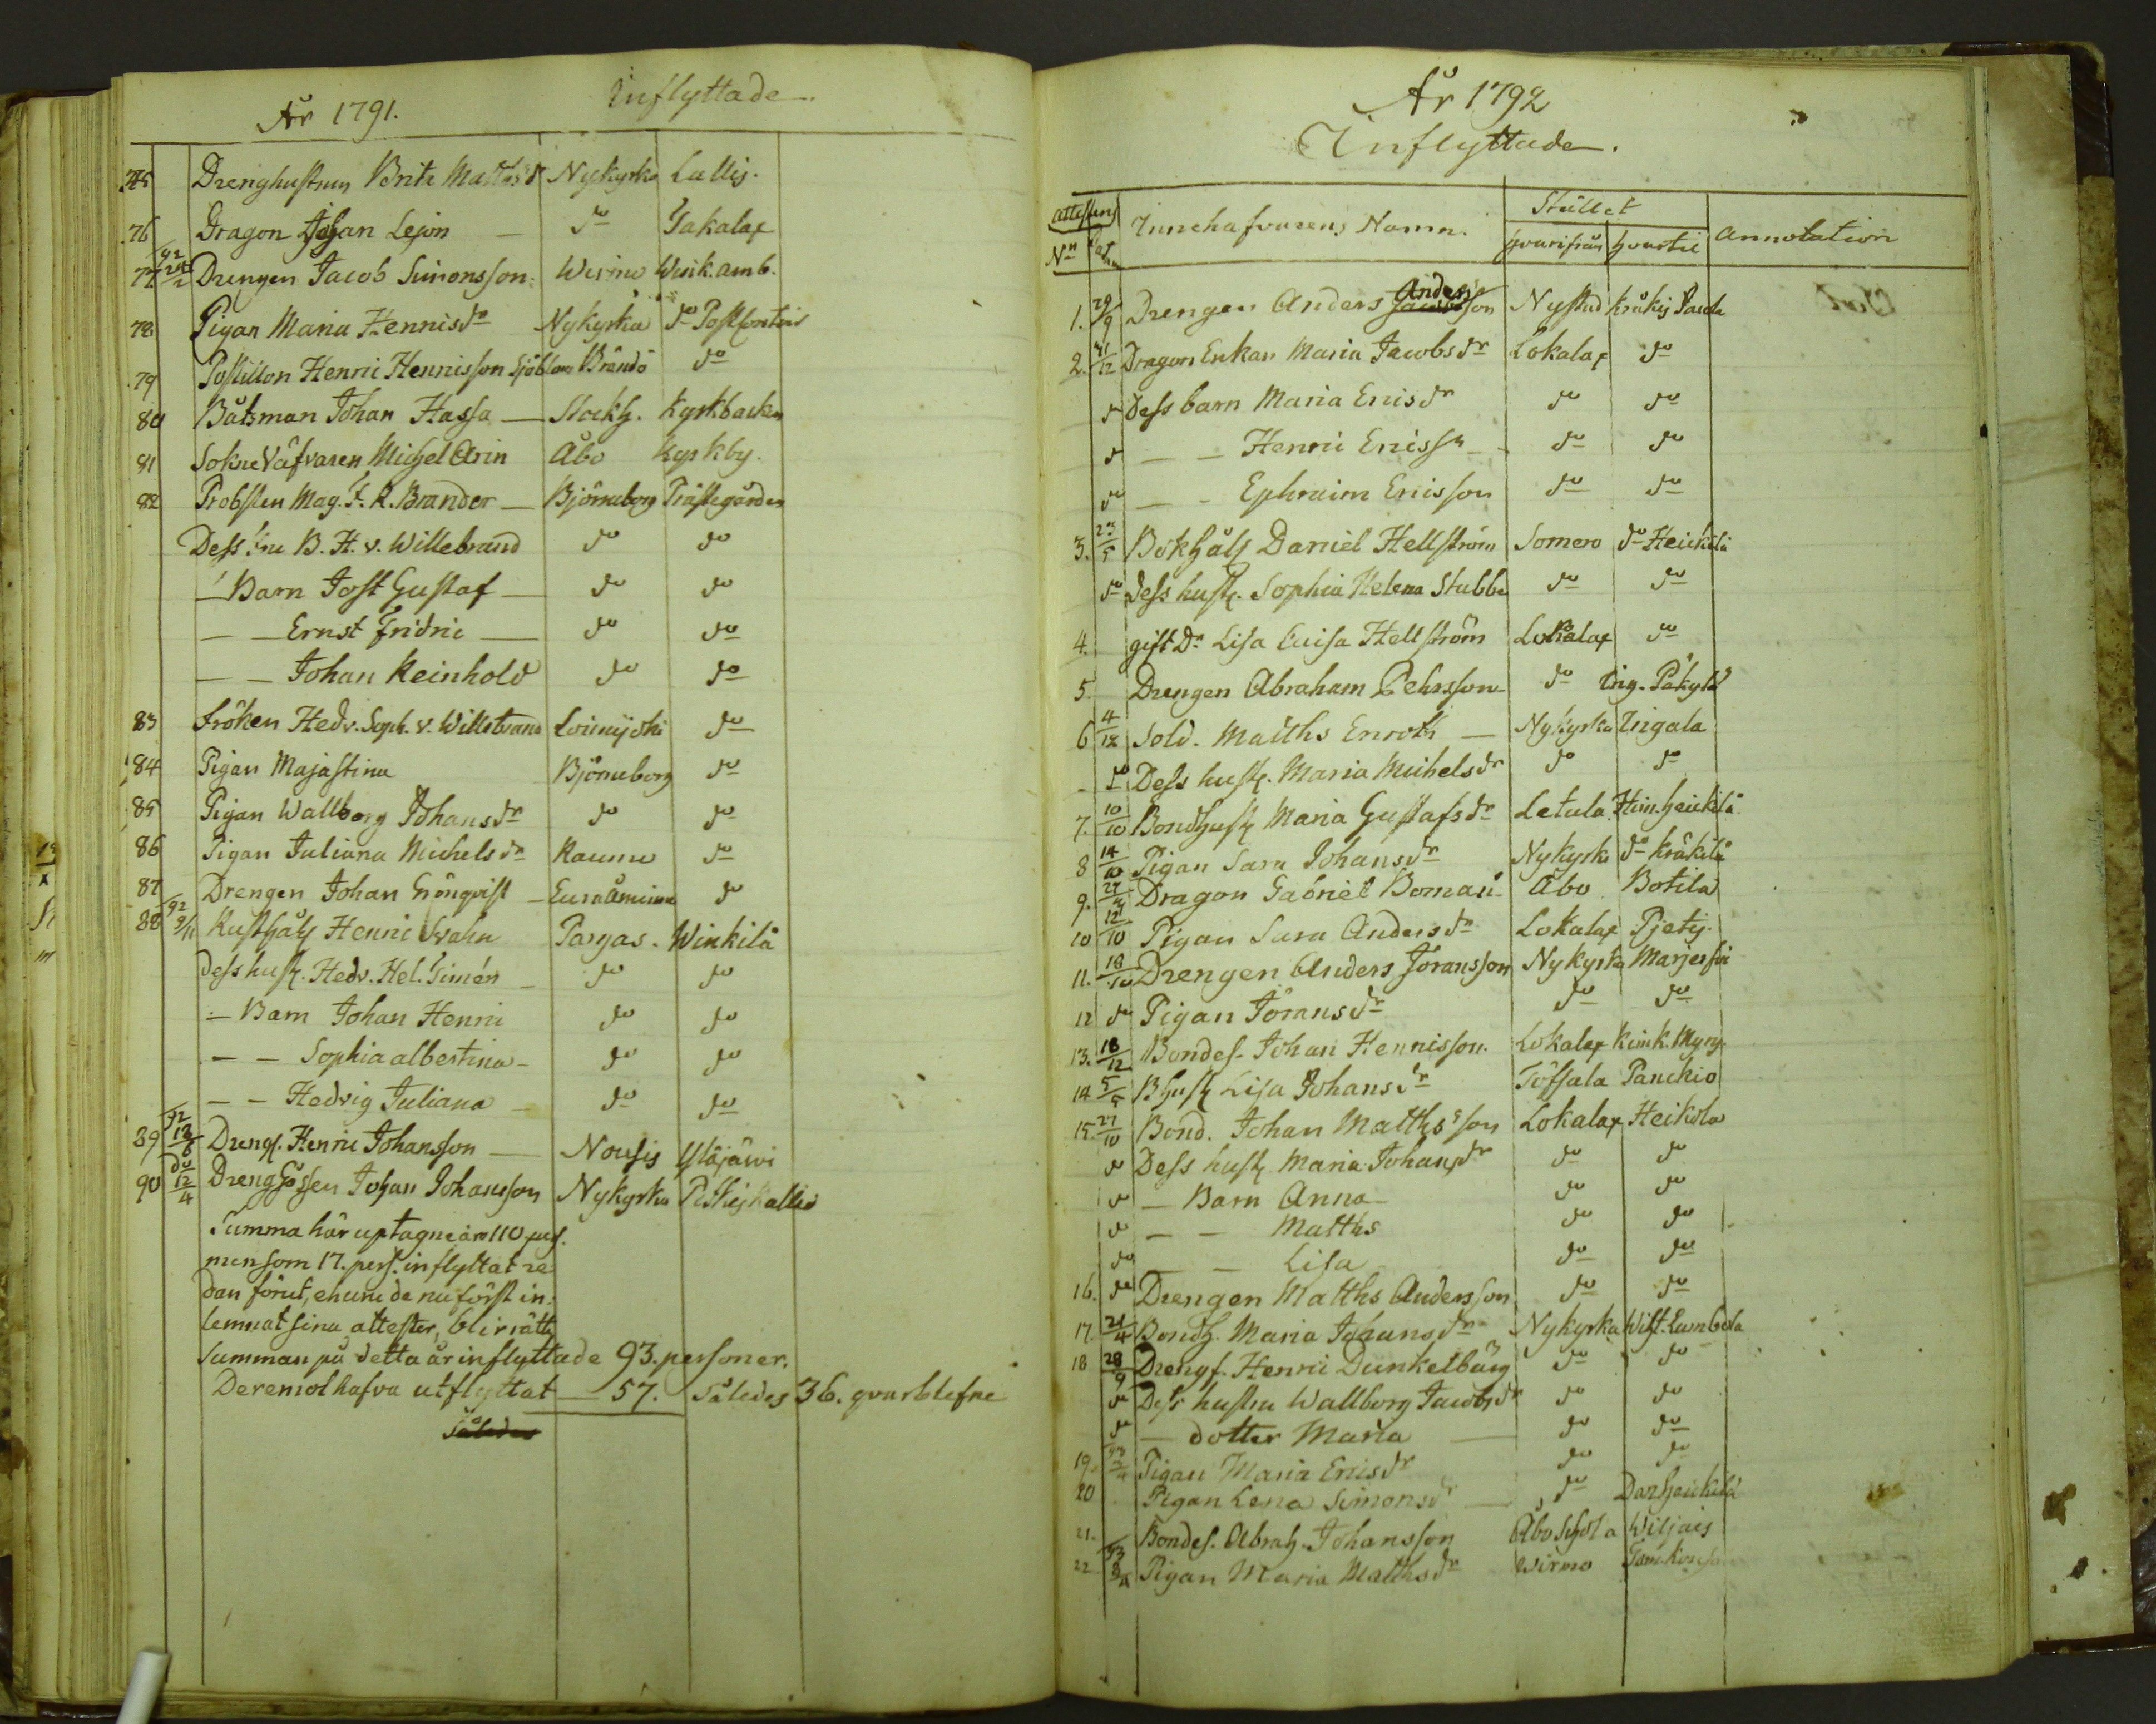 År 1791. Inflyttade
75 Drenghustrun Brita Matthsdr Nykyrka Lallis.
76 Dragon Johan Lejon — do Jakalax
77 92 Drengen Jacob Simonsson Wirmo Wisik. amb.
78 Pigan Maria Henrisdr Nykyrka do Postkontoir
79 Postillon Henric Henrisson Sjöblom Brändö do
80 Båtsman Johan Hassa — Stockh. Kyrkbacken
81 Sokne Väfvaren Michel Arin Åbo Kyrkby.
82 Probsten Mag. F. R. Brander — Björneborg Prästegården
Dess fru B. H. v. Willebrand do do
— Barn Jost Gustaf — do do
— — Ernst Fridric — do do
— — Johan Reinhold do do
83 Fröken Hedv. Soph. v. Willebrand Loimijoki do
84 Pigan Majastina Björneborg do
85 Pigan Wallborg Johansdr do do
86 Pigan Juliana Michelsdr Raumo do
87 Drengen Johan Grönqvist — Euraåminne do
88 92 9/11 Rusthåll Henric Svahn Pargas. Winkilä
Dess hust. Hedv. Hel. Gimén — do do
— Barn Johan Henric do do
— — Sophia albertina — do do
— — Hedvig Juliana — do do
89 92 18/6 Drengs. Henric Johansson — Nousis Yläjärvi
90 do 12/4 Drenggossen Johan Johansson Nykyrka Pitkejkallio
Summa här uptagne äro 110 pers.
men som 17. pers. inflyttat re
dan förut, ehuru de nu först in.
lemnat sina attester, blir rätta
Summan på detta år inflyttade 93. personer.
Deremot hafva utflyttat — 57. Således 36. qvarblefne
Således
År 1792
Inflyttade.
Attestens Innehafvarens Namn. Stället Annotation
No hvarifrån hvartil
1. 29/9 Drengen Anders Jacobsson Anders Nystad Kråkis
2. 21/12 Dragon Enkan Maria Jacobsdr Lokalax do
do Dess barn Maria Ericsdr do do
do — — Henric Ericss. — do do
do — — Ephraim Ericsson do do
3. 23/5 Bokhåll Daniel Hellström Somero do Heickilä
do Dess hust. Sophia Helena Stubbe do do
4. gift Dr Lisa Caisa Hellström Lokalax do
5. Drengen Abraham Pehrsson do Ling. Päkylä
6 4/12 Sold. Matths Enroth — Nykyrka Ingala
do Dess hust. Maria Michelsdr do do
7. 10/10 Bondhust Maria Gustafsdr Letala Him. Heickilä
8 14/10 Pigan Sara Johansdr Nykyrko do Kråkilä
9. Dragon Gabriel Boman Åbo Botila
10 12/10 Pigan Sara Andersdr Lokalax Pjetis
11. 18/10 Drengen Anders Jöransson Nykyrka
12 do Pigan Jöransdr do do
13. 18/12 Bondes. Johan Henrisson. Lokalax
14 5/5 Bhust Lisa Johansdr Töfsala Panckio
15. 27/10 Bond. Johan Matthsson Lokalax Heikola
do Dess hust. Maria Johansdr do do
do — Barn Anna — do do
do — — Matths do do
do — — Lisa do do
16. do Drengen Matths Andersson do do
17. 21/4 Bondh. Maria Johansdr Nykyrka
18 28/9 Drengs. Henric Dunkelbärg do do
do Dess hustru Wallborg Jacobsdr do do
do — dotter Maria — do do
19. Pigan Maria Ericsdr do do
20 Pigan Lena Simonsdr — do
21. Bondes. Abrah. Johansson Åbo Schola Wiljais
22 93 Pigan Maria Matthsdr Wirmo